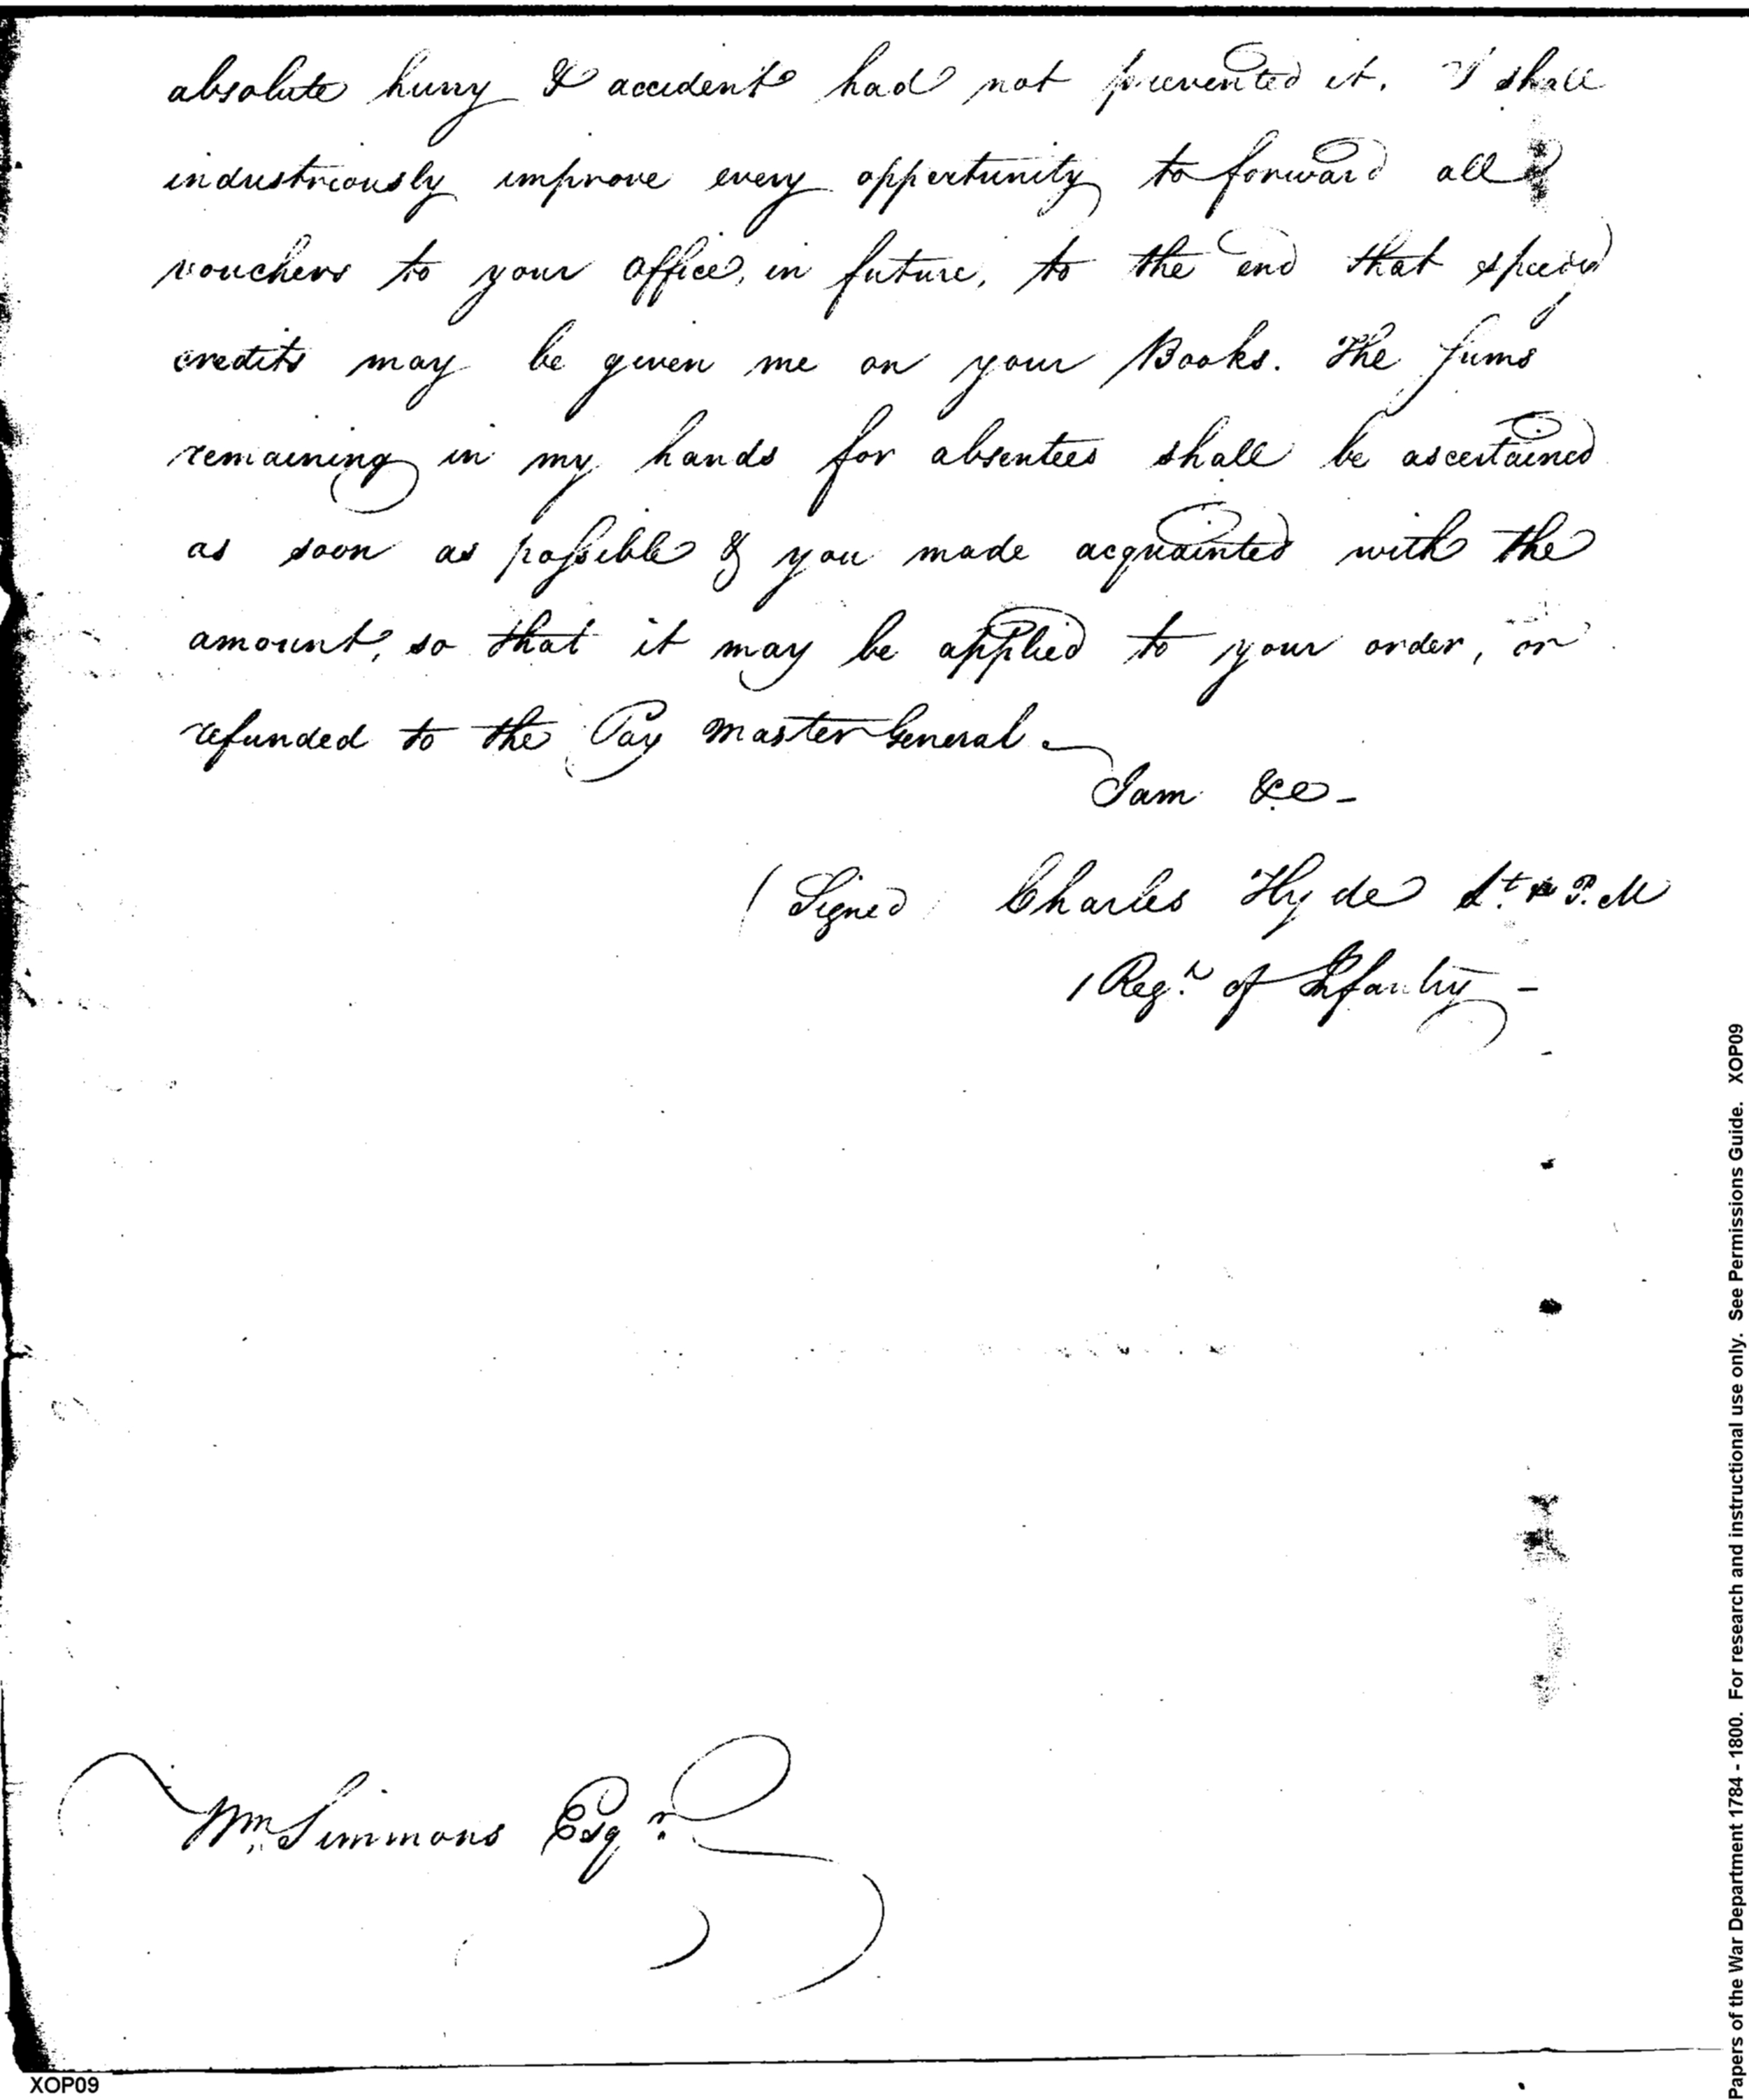 absolute hurry & accident had not prevented it. I shall
industriously improve every oppertunity to forward all
vouchers to your office, in future, to the end that speedy
credits may be given me on your Books. The sums
remaining in my hands for absentees shall be ascertained
as soon as possible & you made acquainted with the
amount, so that it may be applied to your order, or
refunded to the Pay Master General.
I am &c -
(Signed) Charles Hyde Lt. & P. M
1 Regt. of Infantry -
Wm. Simmons Esqr.
XOP09
Papers of the War Department 1784 - 1800. For research and instructional use only. See Permissions Guide. XOP09